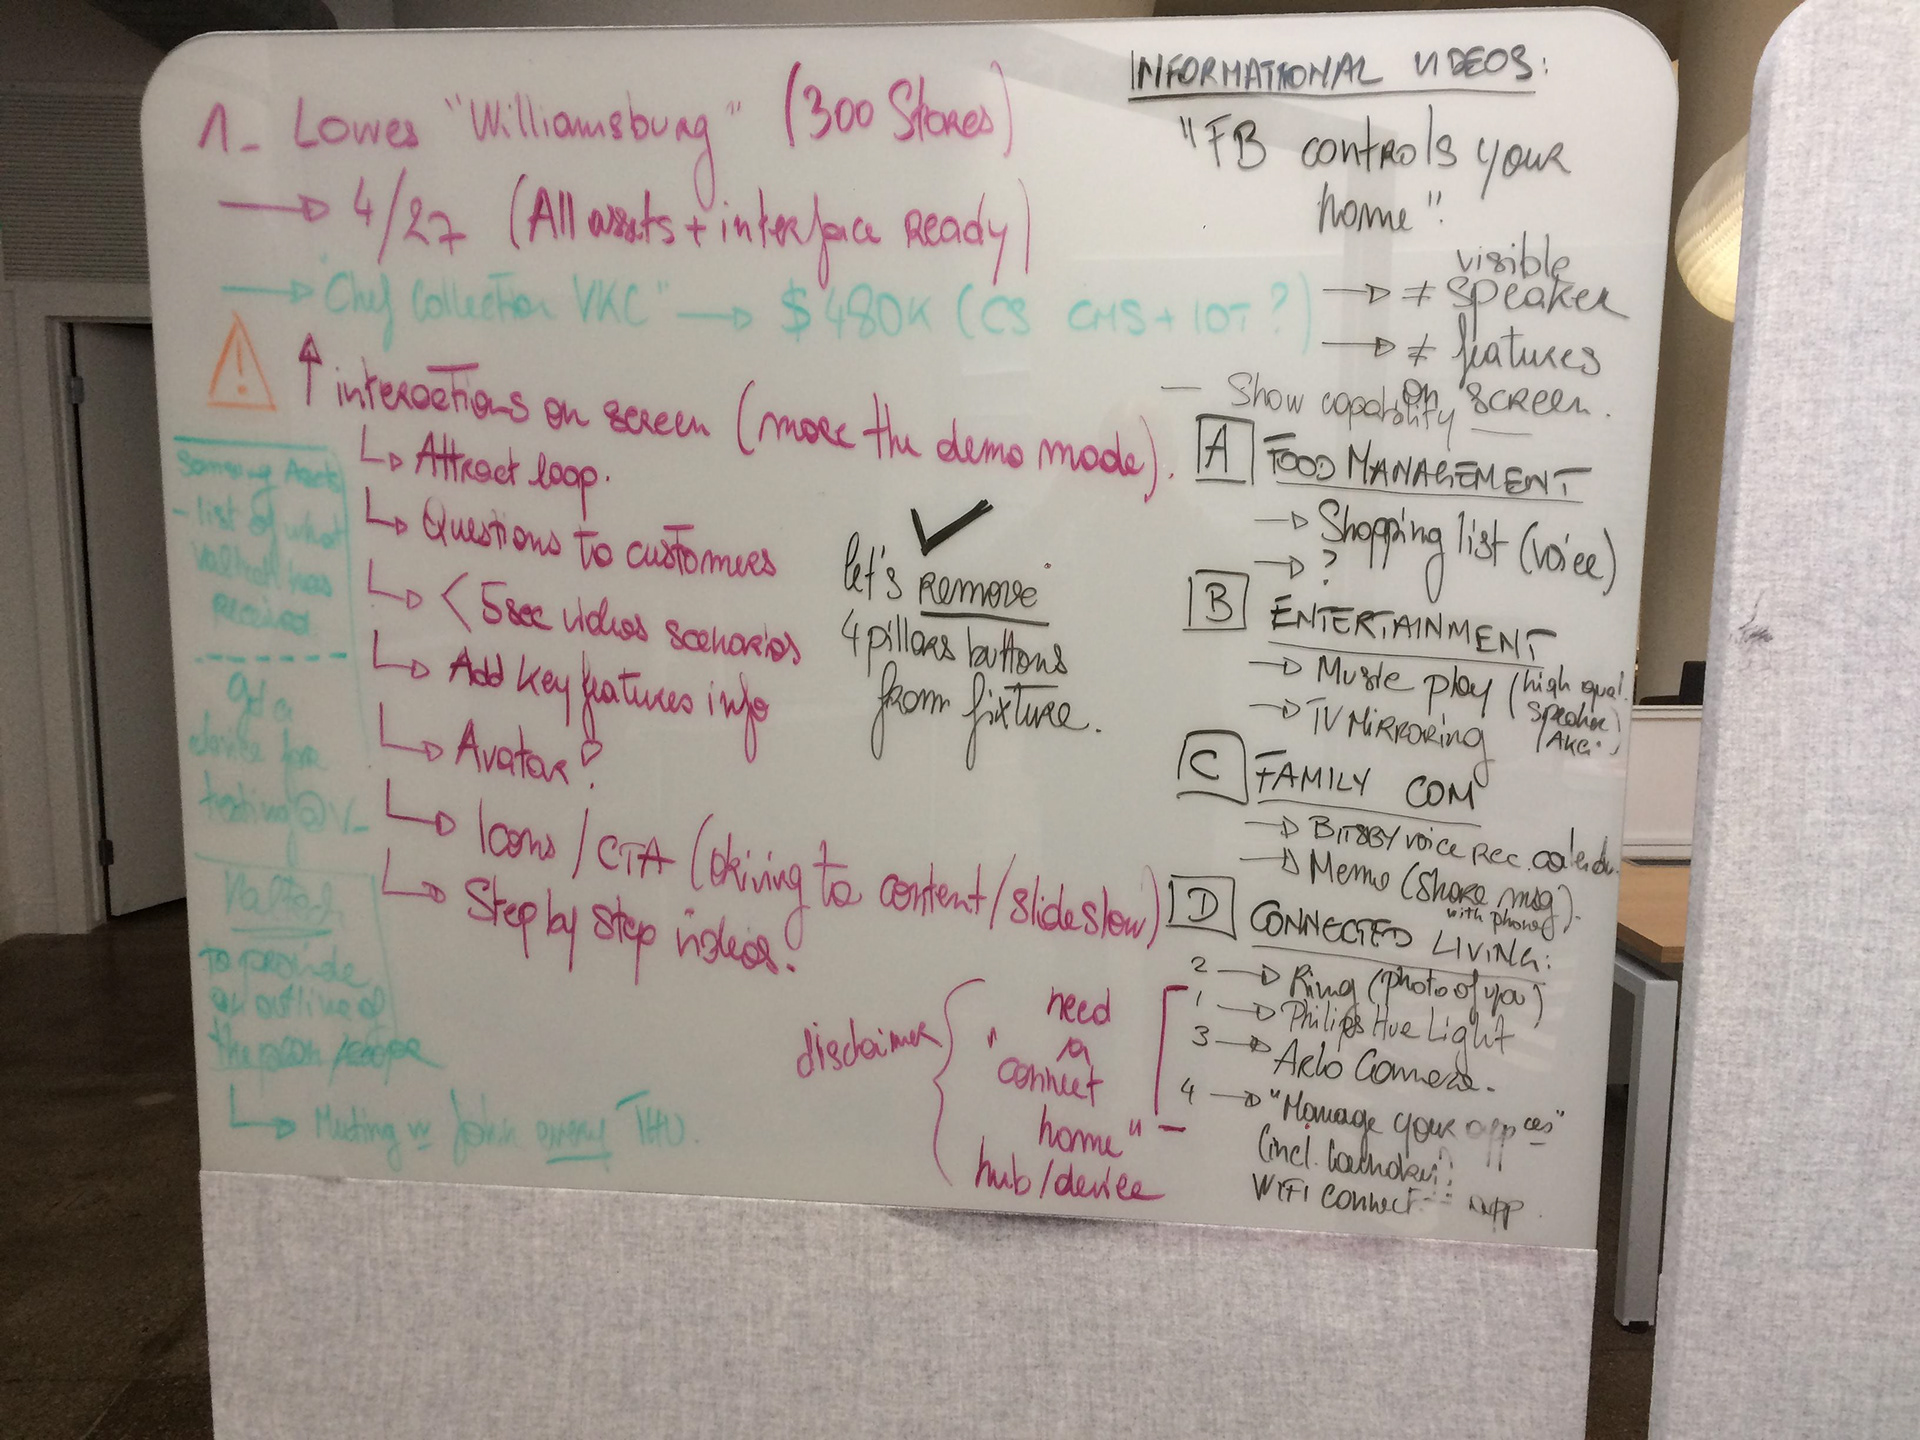 1- Lowes "Williamsburg" (300 Stores)
→ 4/27 (All assets + interface Ready)
→ "Chef Collection VKC" → $480K (CS CMS + IOT ?)
! ↑ interactions on screen (more the demo mode).
↳ Attract loop.
↳ Questions to customers
↳ < 5sec videos scenarios
↳ Add key features info
↳ Avatar?
↳ Icons / CTA (driving to content/slideslow)
↳ Step by step videos.
✓
let's REMOVE
4 pillars buttons
from fixture.
Samsung Assets
- list of what
Valtech has
received
Get a
device for
testing @ V_
Valtech
To provide
an outline of
the plan / scope
↳ Meeting w John every THU.
disclaimer {
need
a
"connect
home"
hub/device
INFORMATIONAL VIDEOS:
"FB controls your
home".
visible
→ ≠ speaker
→ ≠ features
- Show capability on screen.
A FOOD MANAGEMENT
→ Shopping list (voice)
→ ?
B ENTERTAINMENT
→ Music play (high qual.
speaker
AKG.)
→ TV MIRRORING
C FAMILY COM
→ BITSBY voice rec. calendar
→ Memo (share msg).
with phone
D CONNECTED LIVING:
2 → Ring (photo of you)
1 → Philips Hue Light
3 → Arlo Camera.
4 → "Manage your app ces"
(incl.
WIFI connect app.